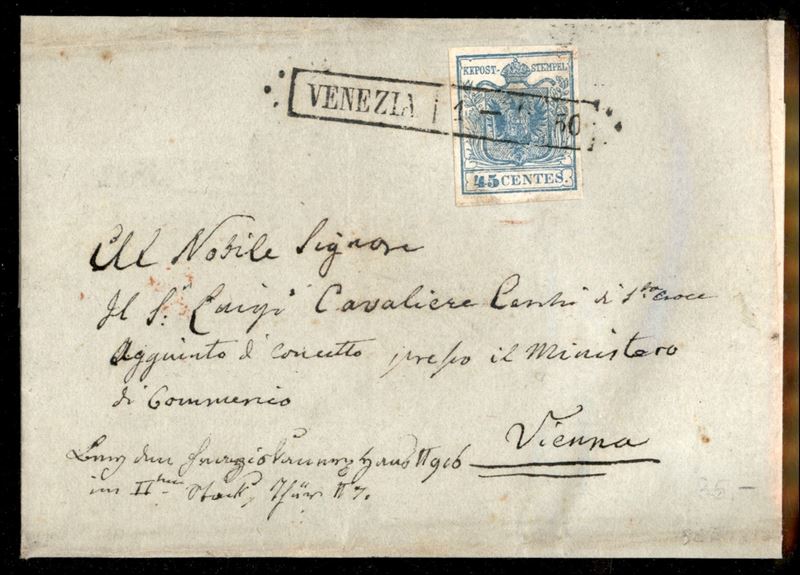 KKPOST-STEMPEL
VENEZIA 1 — 50
45 CENTES.
Al Nobile Signore
Il S.r Luigi Cavaliere di S.ta Croce
Aggiunto di concetto presso il Ministero
di Commercio
Vienna
Haus N 916
im II ten Stock, Thür N 7.
25 —